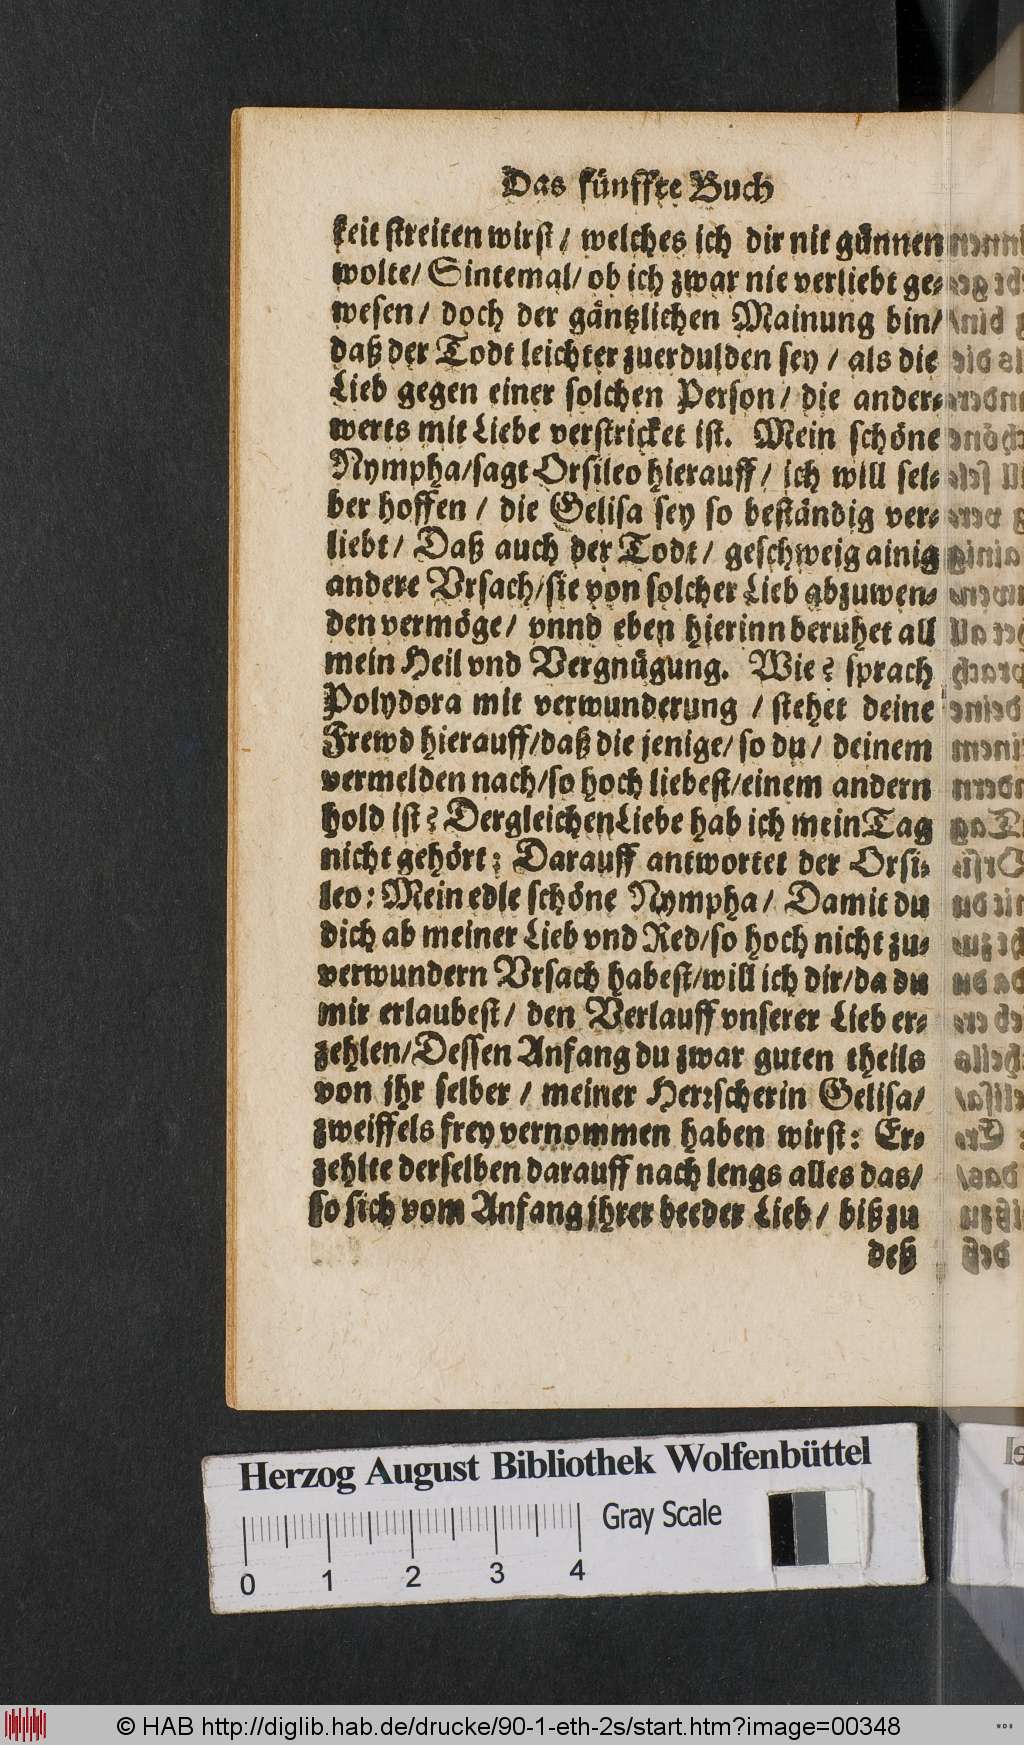 Das fünffte Buch
keit streiten wirst / welches ich dir nit günnen
wolte/ Sintemal/ ob ich zwar nie verliebt ge-
wesen / doch der gäntzlichen Mainung bin/
daß der Todt leichter zuerdulden sey / als die
Lieb gegen einer solchen Person / die ander-
werts mit Liebe verstricket ist. Mein schöne
Nympha/sagt Orsileo hierauff / ich will sel-
ber hoffen / die Gelisa sey so beständig ver-
liebt / Daß auch der Todt / geschweig ainig
andere Vrsach/sie von solcher Lieb abzuwen-
den vermöge/ vnnd eben hierinn beruhet all
mein Heil vnd Vergnügung. Wie? sprach
Polydora mit verwunderung / stehet deine
Frewd hierauff/daß die jenige/ so du / deinem
vermelden nach/so hoch liebest/einem andern
hold ist? Dergleichen Liebe hab ich mein Tag
nicht gehört: Darauff antwortet der Orsi-
leo: Mein edle schöne Nympha / Damit du
dich ab meiner Lieb vnd Red/so hoch nicht zu-
verwundern Vrsach habest/will ich dir/da du
mir erlaubest / den Verlauff vnserer Lieb er-
zehlen/Dessen Anfang du zwar guten theils
von jhr selber / meiner Herrscherin Gelisa/
zweiffels frey vernommen haben wirst: Er-
zehlte derselben darauff nach lengs alles das/
so sich vom Anfang jhrer beeder Lieb / biß zu
deß
Herzog August Bibliothek Wolfenbüttel
Gray Scale
0 1 2 3 4
© HAB http://diglib.hab.de/drucke/90-1-eth-2s/start.htm?image=00348